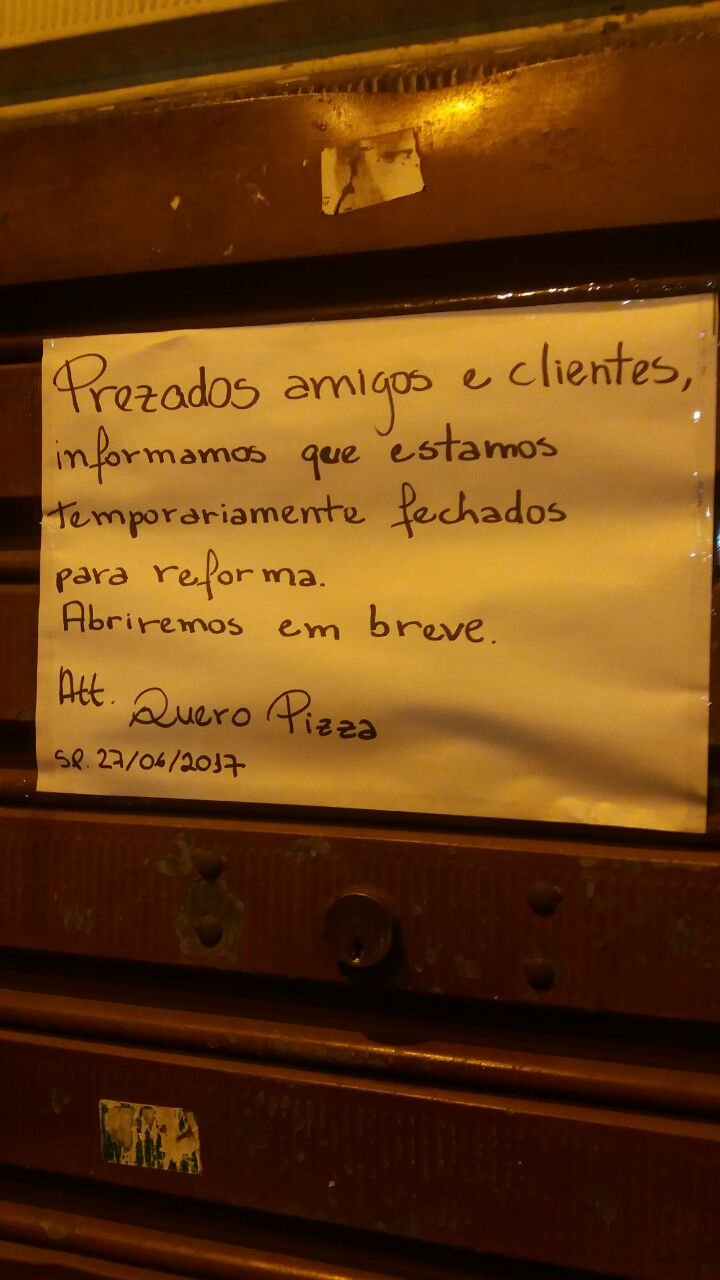 Prezados amigos e clientes,
informamos que estamos
temporariamente fechados
para reforma.
Abriremos em breve.
Att. Quero Pizza
SP. 27/06/2017